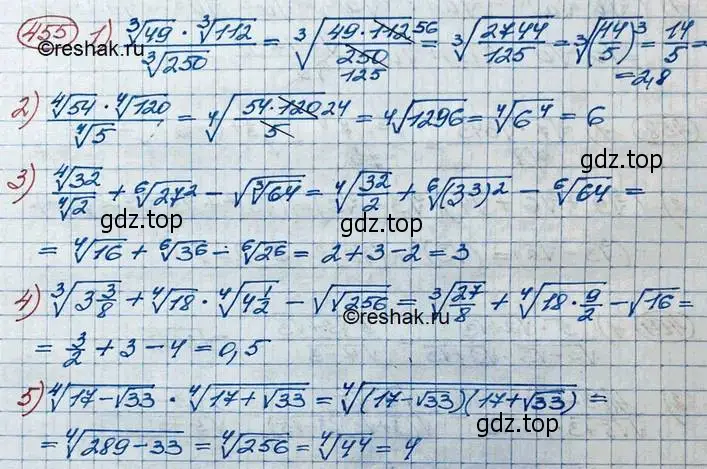 455 1) ∛49 · ∛112 / ∛250 = ∛(49 · 112 56 / 250 125) = ∛(2744/125) = ∛(14/5)³ = 14/5 =
= 2,8
©reshak.ru
2) ⁴√54 · ⁴√120 / ⁴√5 = ⁴√(54 · 120 24 / 5) = ⁴√1296 = ⁴√6⁴ = 6
gdz.top
3) ⁴√32 / ⁴√2 + ⁶√27² − √∛64 = ⁴√(32/2) + ⁶√(3³)² − ⁶√64 =
gdz.top gdz.top
= ⁴√16 + ⁶√3⁶ − ⁶√2⁶ = 2 + 3 − 2 = 3
4) ∛(3 3/8) + ⁴√18 · ⁴√(4 1/2) − √√256 = ∛(27/8) + ⁴√(18 · 9/2) − √16 =
©reshak.ru
= 3/2 + 3 − 4 = 0,5
5) ⁴√(17 − √33) · ⁴√(17 + √33) = ⁴√((17 − √33)(17 + √33)) =
gdz.top
= ⁴√(289 − 33) = ⁴√256 = ⁴√4⁴ = 4
gdz.top